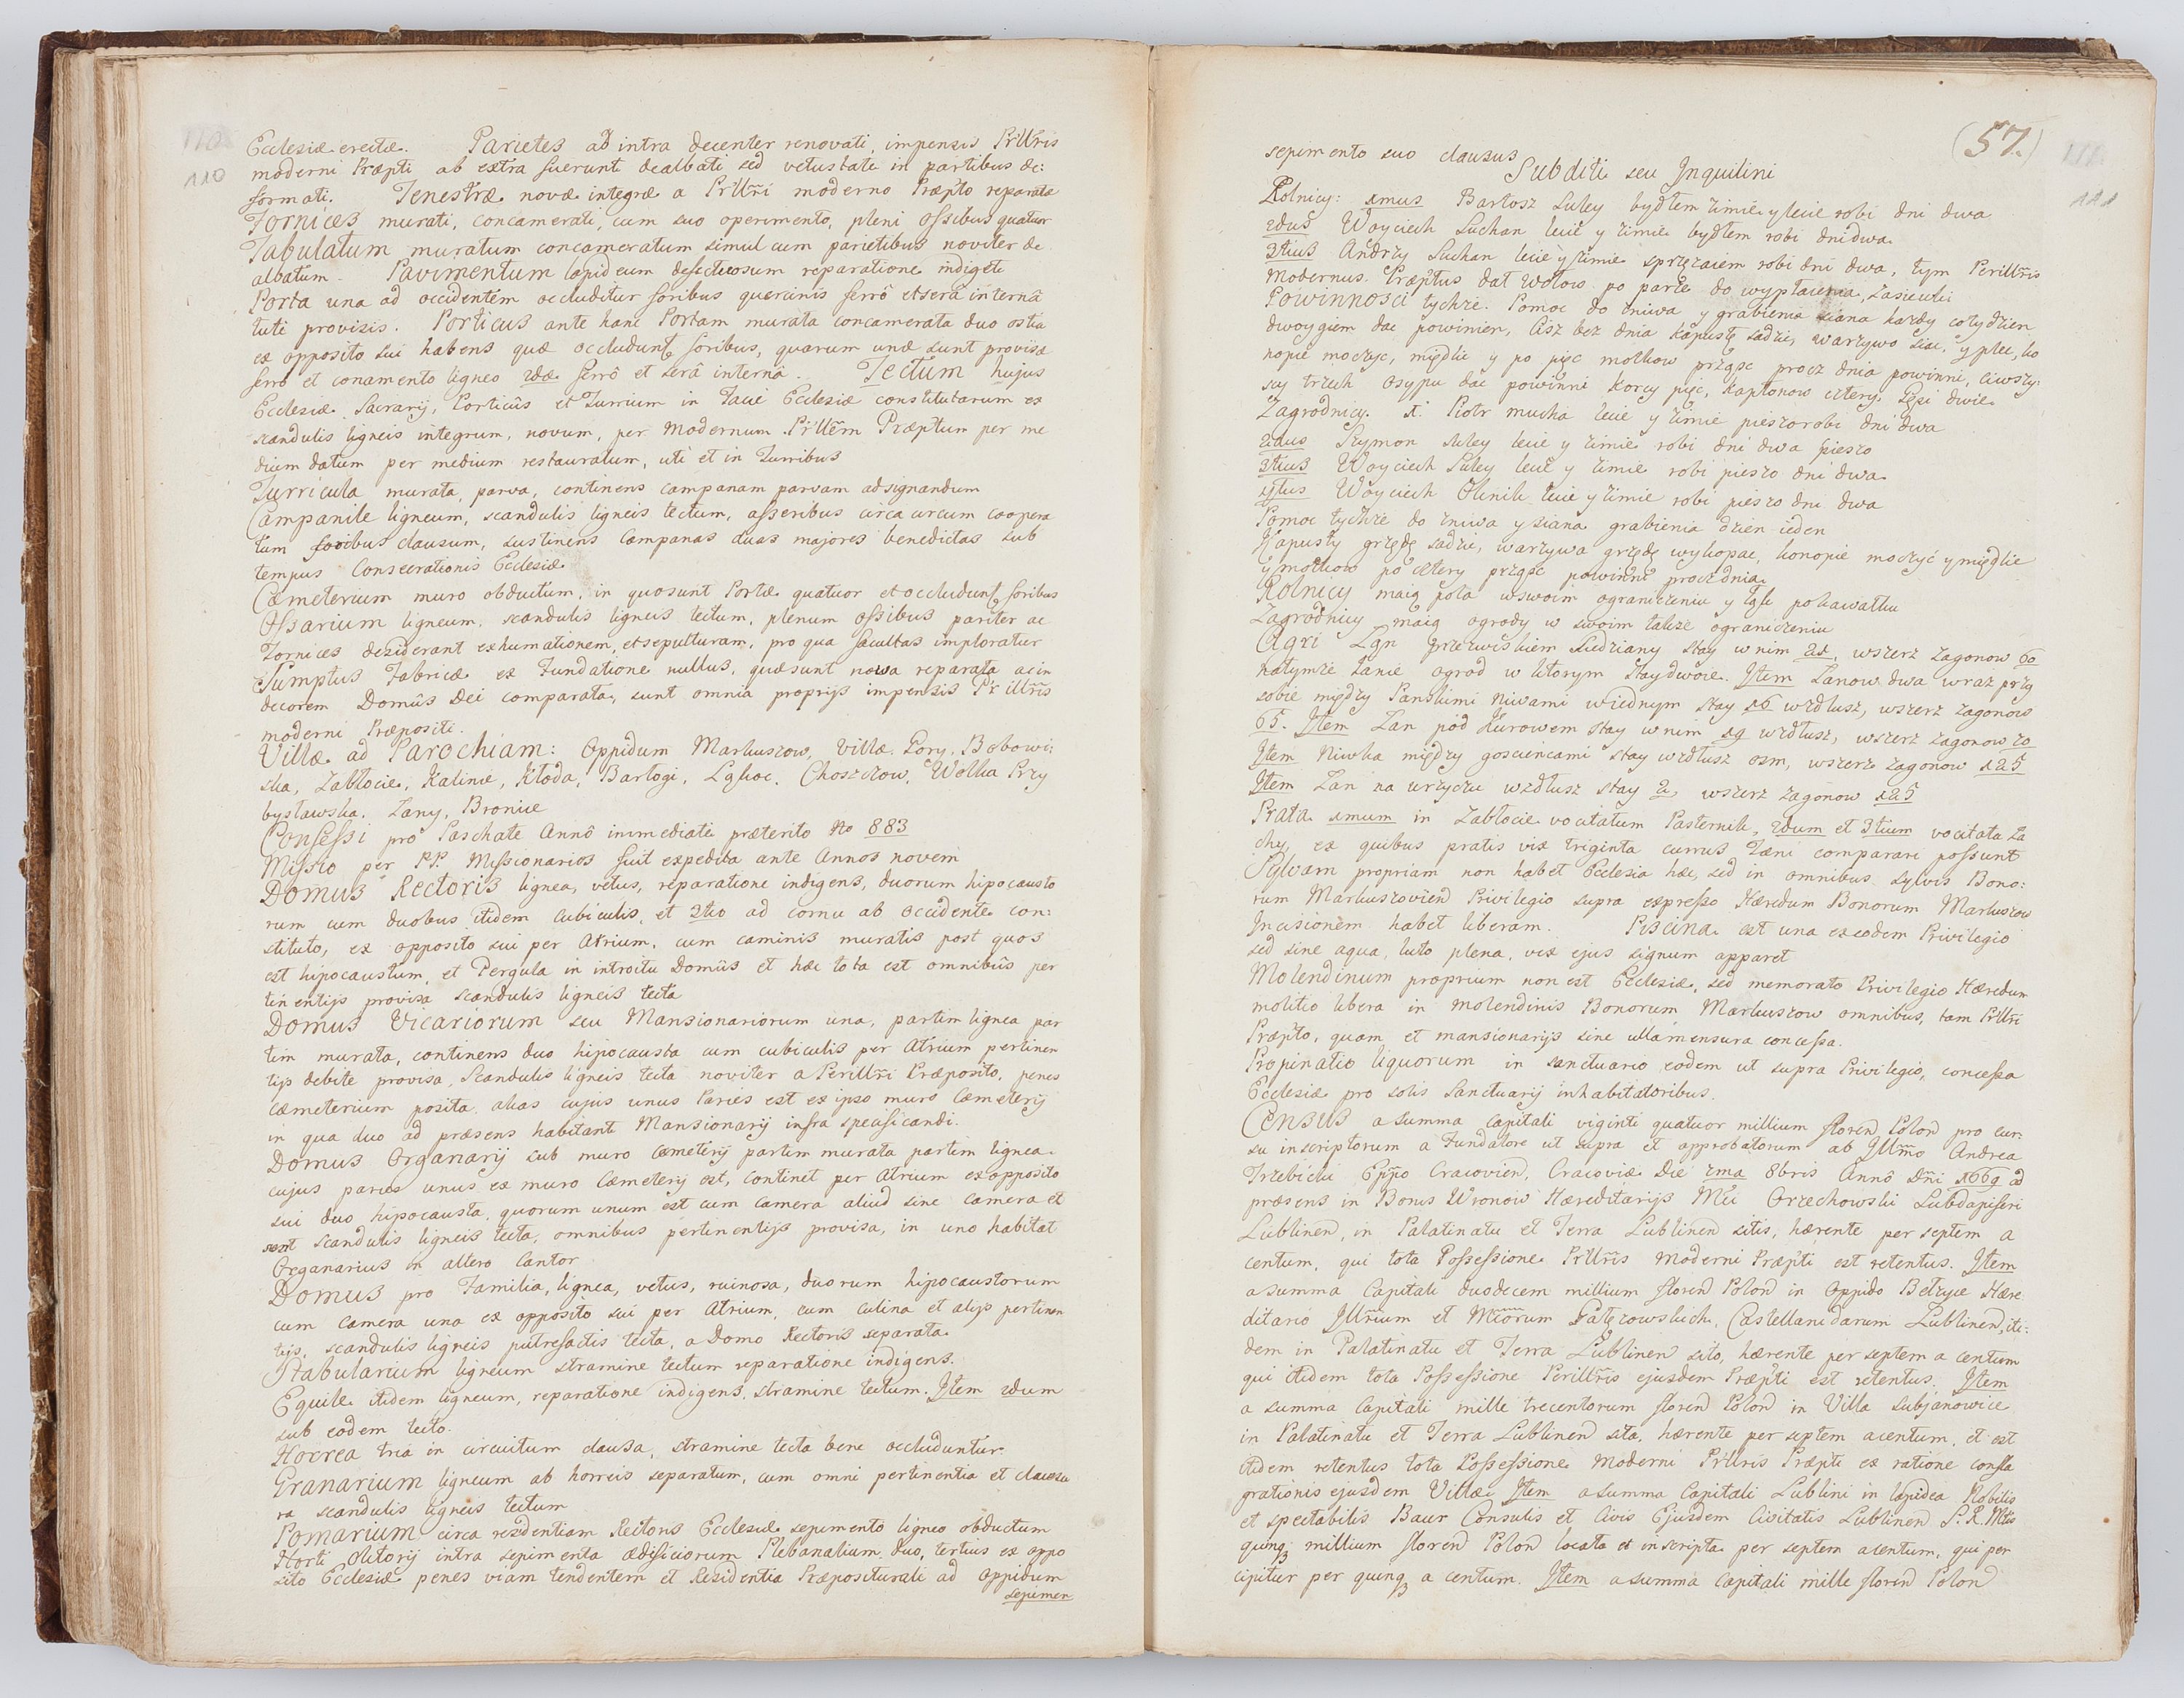 110
Ecclesiæ erectæ. Parietes ab intra decenter renovati, impensis Prillris
moderni Præpti ab extra fuerunt dealbati sed vetustate in partibus de:
formati. Fenestræ novæ integræ a Prllri moderno Præpto reparatæ
Fornices murati, concamerati, cum suo operimento, pleni ossibus quatuor
Tabulatum muratum concameratum simul cum parietibus noviter de
albatum. Pavimentum lapideum defectuosum reparatione indiget
Porta una ad occidentem occluditur foribus quercinis ferrô et serâ internâ
tuti provisis. Porticus ante hanc Portam murata concamerata duo ostia
ex opposito sui habens quæ occludunt foribus, quarum unæ sunt provisæ
ferro et conamento ligneo 2dæ ferrô et serâ internâ. Tectum hujus
Ecclesiæ Sacrarij, Porticûs et Turrium in Facie Ecclesiæ constitutarum ex
scandulis ligneis integrum, novum, per Modernum Prillem Præptum per me
dium datum per medium restauratum, uti et in Turribus
Turricula murata, parva, continens campanam parvam ad signandum
Campanile ligneum, scandulis ligneis tectum, asseribus circa circum coopera
tum foribus clausum, sustinens Campanas duas majores benedictas sub
tempus Consecrationis Ecclesiæ
Cæmeterium muro obductum, in quo sunt Portæ quatuor et occludunt foribus
Ossarium ligneum, scandulis ligneis tectum, plenum ossibus pariter ac
Fornices desiderant exhumationem, et sepulturam, pro qua facultas imploratur
Sumptus Fabricæ ex Fundatione nullus, quæ sunt nova reparata ac in
decorem Domûs Dei comparata, sunt omnia proprijs impensis Prillris
moderni Præpositi.
Villæ ad Parochiam: Oppidum Markuszow, Villæ Gory, Bobowi:
ska, Zabłocie, Kalinie, Kłoda, Barłogi, Łąkoc, Choszczow, Wolka Przy
bysławska, Łany, Bronice
Confessi pro Paschate Annô immediate præterito No 883
Missio per PP. Missionarios fuit expedita ante Annos novem
Domus Rectoris lignea, vetus, reparatione indigens, duorum hipocausto
rum cum duobus itidem cubiculis, et 3tio ad cornu ab occidente con:
stituto, ex opposito sui per Atrium, cum caminis muratis post quos
est hipocaustum, et Pergula in introitu Domûs et hæc tota est omnibus per
tinentijs provisa scandulis ligneis tecta
Domus Vicariorum seu Mansionariorum una, partim lignea par
tim murata, continens duo hipocausta cum cubiculis per Atrium pertinen
tijs debite provisa, scandulis ligneis tecta noviter a Perillri Præposito, penes
cæmeterium posita, alias cujus unus Paries est ex ipso muro Cæmeterij
in qua duo ad præsens habitant Mansionarij infra specificandi.
Domus Organarij sub muro cæmeterij partim murata partim lignea
cujus paries unus ex muro Cæmeterij est, continet per Atrium ex opposito
sui duo hipocausta, quorum unum est cum camera aliud sine camera et
sunt scandulis ligneis tecta, omnibus pertinentijs provisa, in uno habitat
Organarius in altero Cantor
Domus pro Familia, lignea, vetus, ruinosa, duorum hipocaustorum
cum camera una ex opposito sui per Atrium, cum culina et alijs pertinen
tijs, scandulis ligneis putrefactis tecta, a Domo Rectoris separata
Stabularium ligneum stramine tectum reparatione indigens.
Equile itidem ligneum, reparatione indigens, stramine tectum. Item 2dum
sub eodem tecto.
Horrea tria in circuitum clausa, stramine tecta bene occluduntur
Granarium ligneum ab horreis separatum, cum omni pertinentia et clausu
ra scandulis ligneis tectum
Pomarium circa residentiam Rectoris Ecclesiæ sepimento ligneo obductum
Horti Olitorij intra sepimenta ædificiorum Plebanalium duo, tertius ex oppo
sito Ecclesiæ penes viam tendentem et Residentia Præpositurali ad oppidum
sepimen
(57.)
111
sepimento suo clausus
Subditi seu Inquilini
Rolnicy: 1mus Bartosz Suley bydłem zimie y lecie robi dni dwa
2dus Woyciech Suchan lecie y zimie bydłem robi dni dwa
3tius Andrzy Suchan lecie y zimie sprzężaiem robi dni dwa, tym Perillris
Modernus Præptus dał wołow po parze do wypłacenia, zasiewki
Powinnosci tychże. Pomoc do żniwa y grabienia siana każdy co tydzien
dwoygiem dac powinien, Aisz bez dnia kapustę sadzic, warzywo siac, y plec, ko
nopie moczyc, międlic y po pięc motkow prząsc procz dnia powinni, ciwszy:
scy trzech Osypu dac powinni korcy pięc, kapłonow cztery Gęsi dwie
Zagrodnicy. 1. Piotr mucha lecie y zimie pieszo robi dni dwa
2dus Szymon Suley lecie y zimie robi dni dwa pieszo
3tius Woyciech Suley lecie y zimie robi pieszo dni dwa
4tus Woyciech Olenik lecie y zimie robi pieszo dni dwa
Pomoc tychże do żniwa y siana grabienia dzien ieden
Kapusty grzędę sadzic, warzywa grzędę wykopac, konopie moczyć y międlic
y motkow po cztery prząsc powinni procz dnia
Rolnicy maią pola w swoim ograniczeniu y łąk po kawałku
Zagrodnicy maią ogrody w swoim także ograniczeniu
Agri Łan przezwiskiem Siedziany stay w nim 21, wszerz zagonow 60
na tymże łanie ogrod w ktorym stay dwoie. Item Łanow dwa wraz przy
sobie między Panskimi Niwami w iednym stay 16 wzdłusz, wszerz zagonow
65. Item Łan pod Kurowem stay w nim 19 wzdłusz, wszerz zagonow 20
Item Niwka między goscieńcami stay wzdłusz osm, wszerz zagonow 125
Item Łan na urzyczu wzdłusz stay 2, wszerz zagonow 125
Prata 1mum in Zabłocie vocitatum Pasternik, 2dum et 3tium vocitata Ła
chy, ex quibus pratis vix triginta currus fæni comparari possunt
Sylvam propriam non habet Ecclesia hæc, sed in omnibus sylvis Bono:
rum Markuszovien Privilegio supra expresso Hæredum Bonorum Markuszow
Incisionem habet liberam. Piscina est una ex eodem Privilegio
sed sine aqua, luto plena, vix ejus signum apparet
Molendinum proprium non est Ecclesiæ, sed memorato Privilegio Hæredum
molitio libera in molendinis Bonorum Markuszow omnibus, tam Prllri
Præpto, quam et mansionarijs sine ulla mensura concessa.
Propinatio liquorum in sanctuario eodem ut supra Privilegio, concessa
Ecclesiæ pro solis Sanctuarij inhabitatoribus.
Census a summa capitali viginti quatuor millium floren Polon pro cen:
su inscriptorum a Fundatore ut supra et approbatorum ab Illmo Andrea
Trzebicki Eppo Cracovien, Cracoviæ Die 2ma 8bris Annô Dni 1669 ad
præsens in Bonis Wronow Hæreditarijs Mci Orzechowski Subdapiferi
Lublinen, in Palatinatu et Terra Lublinen sitis, hærente per septem a
centum, qui tota Possessione Prllris Moderni Præpti est retentus. Item
a summa Capitali duodecem millium floren Polon in Oppido Bełzyce Hære
ditario Illrium et Mcorum Gałęzowskich, Castellanidarum Lublinen, iti:
dem in Palatinatu et Terra Lublinen sito, hærente per septem a centum
qui itidem tota Possessione Perillris ejusdem Præpti est retentus. Item
a summa Capitali mille trecentorum floren Polon in Villa Subjanowice
in Palatinatu et Terra Lublinen sita, hærente per septem a centum, et est
itidem retentus tota Possessione Moderni Prllris Præpti ex ratione confla
grationis ejusdem Villæ. Item a summa Capitali Lublini in lapidea Nobilis
et spectabilis Baur Consulis et Civis Ejusdem Civitatis Lublinen S. R. Mtis
quinq millium floren Polon locata et inscripta per septem a centum, qui per
cipitur per quinq a centum. Item a summa Capitali mille floren Polon